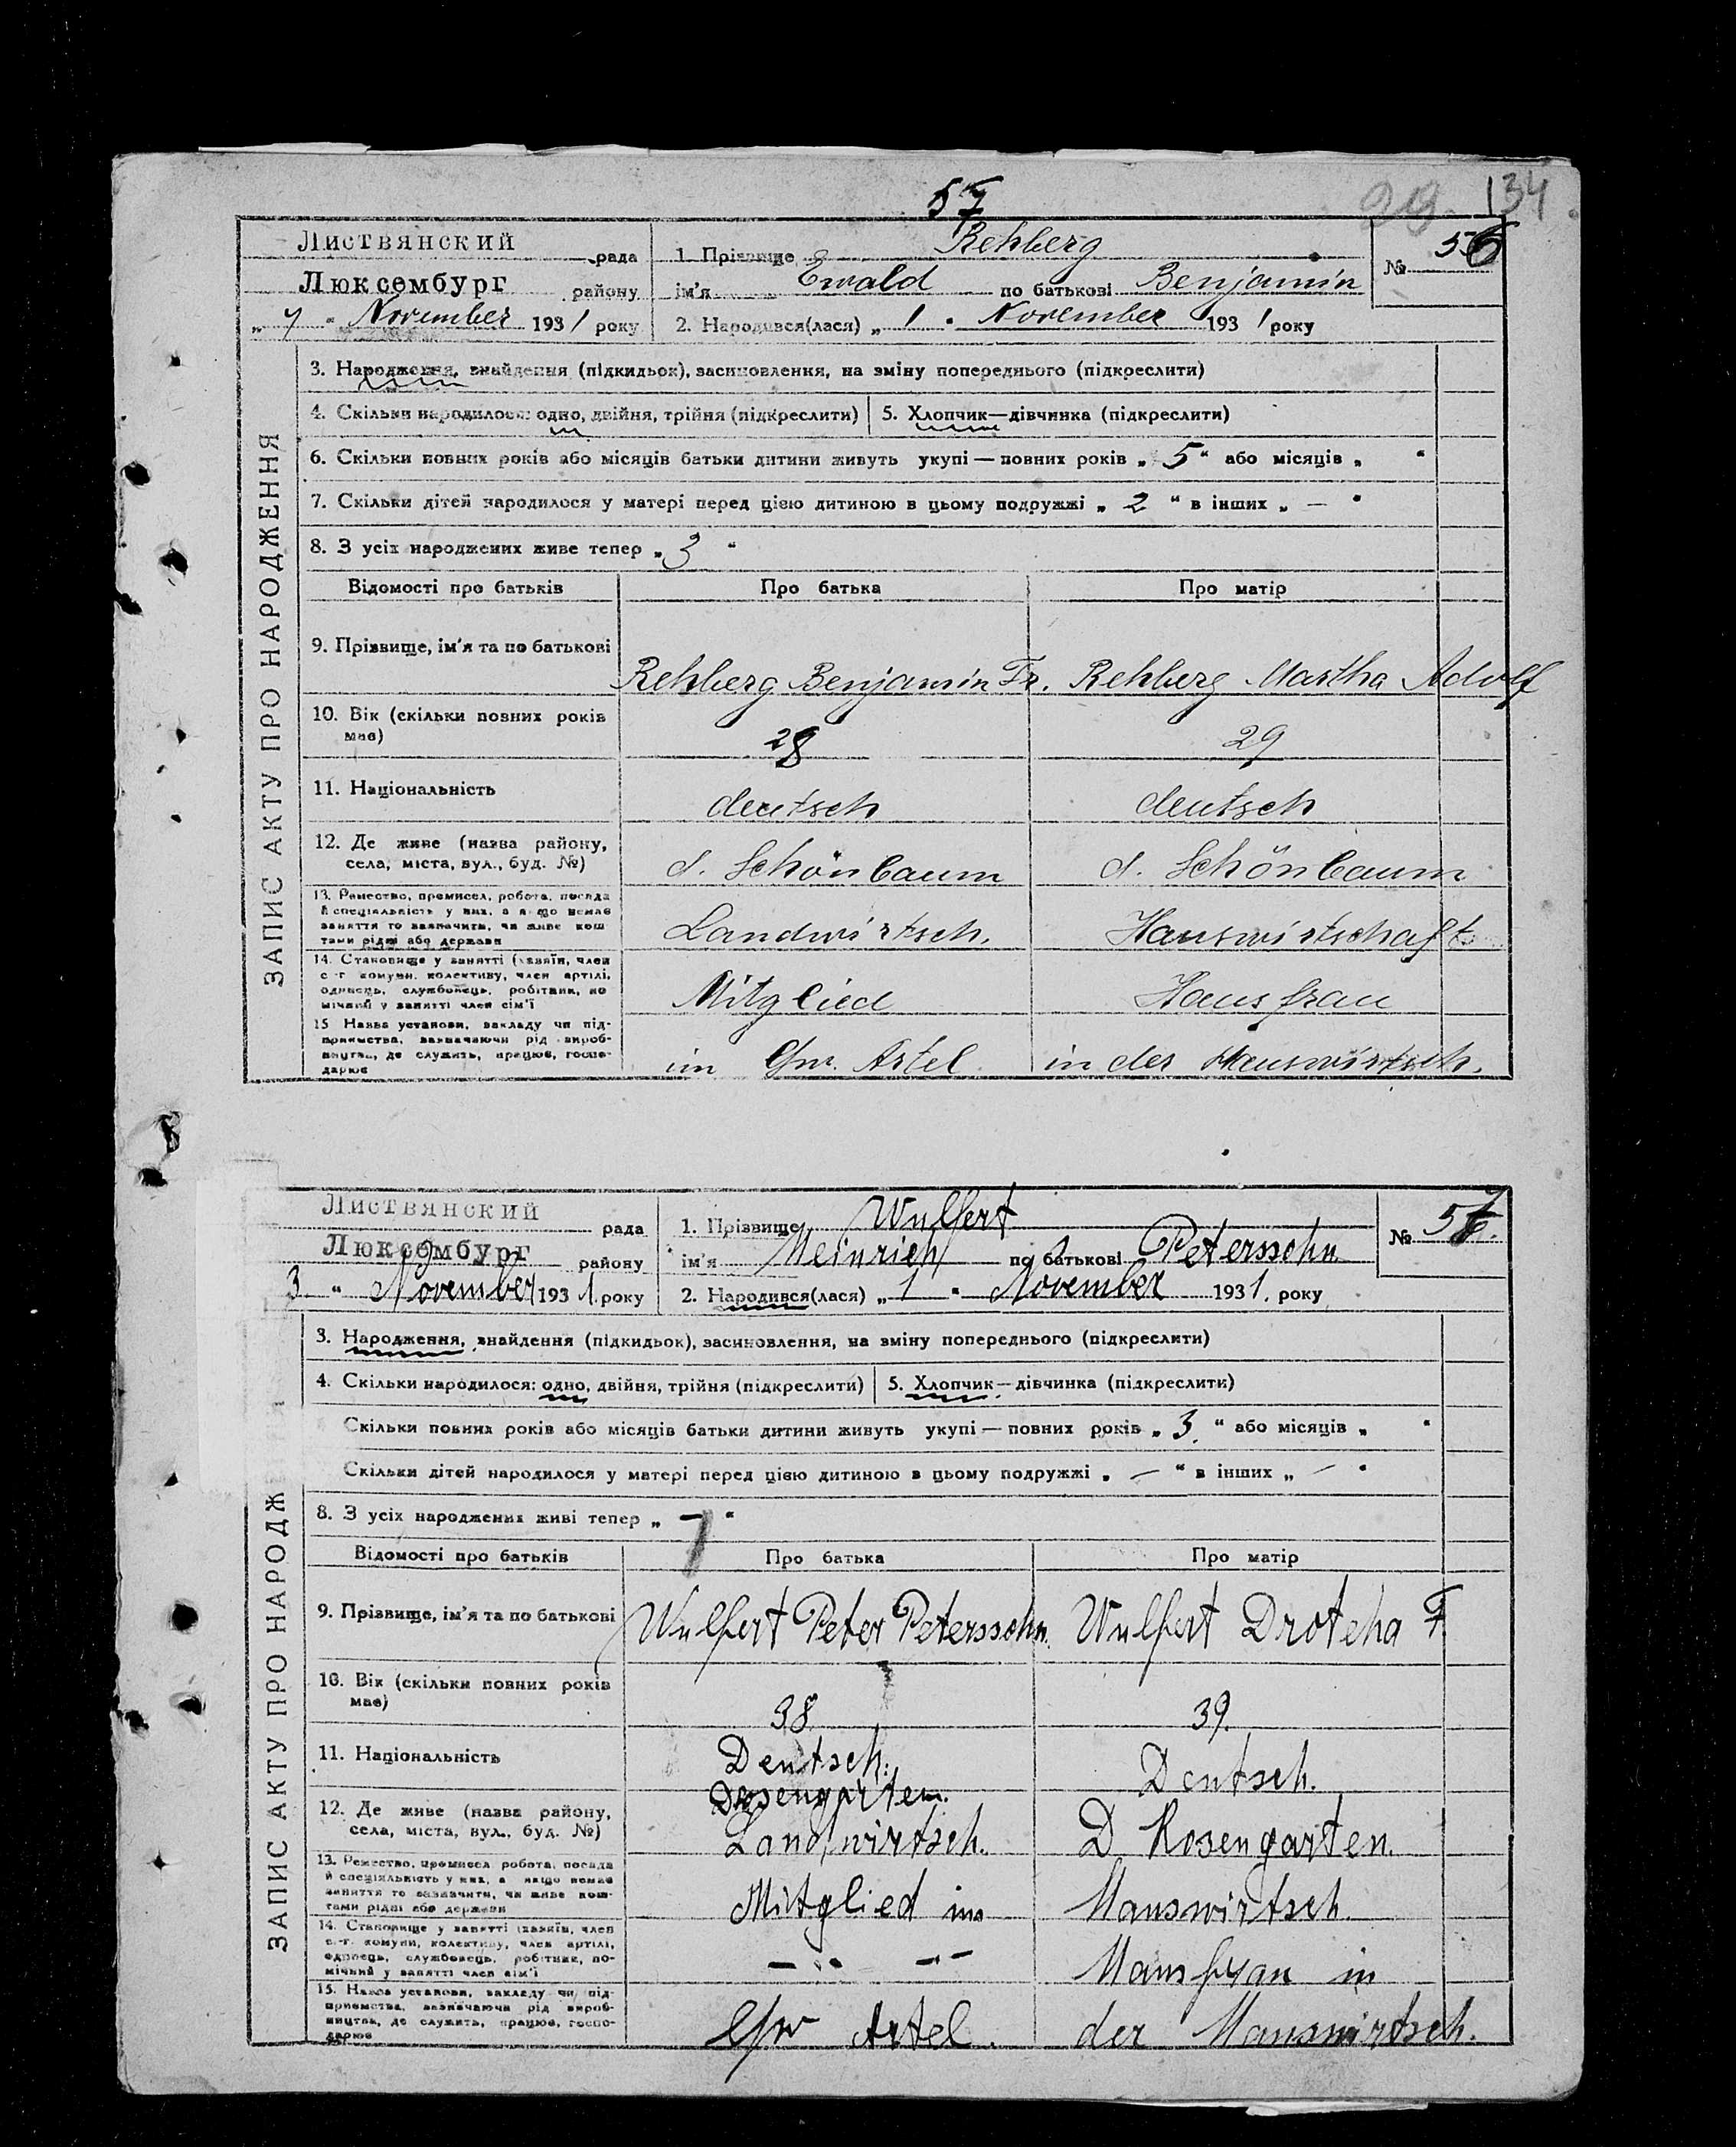 57
29. 134.
Листвянский рада
Люксембург району
„ 7 “ November 1931 року
1. Прізвище Rehberg
ім'я Ewald по батькові Benjamin
2. Народився(лася) „ 1 “ November 1931 року
№ 56
ЗАПИС АКТУ ПРО НАРОДЖЕННЯ
3. Народження, знайдення (підкидьок), засиновлення, на зміну попереднього (підкреслити)
4. Скільки народилося: одно, двійня, трійня (підкреслити) 5. Хлопчик—дівчинка (підкреслити)
6. Скільки повних років або місяців батьки дитини живуть укупі — повних років „ 5 “ або місяців „ “
7. Скільки дітей народилося у матері перед цією дитиною в цьому подружжі „ 2 “ в інших „ — “
8. З усіх народжених живе тепер „ 3 “
Відомості про батьків Про батька Про матір
9. Прізвище, ім'я та по батькові Rehberg Benjamin Fr. Rehberg Martha Adolf
10. Вік (скільки повних років має) 28 29
11. Національність deutsch deutsch
12. Де живе (назва району, села, міста, вул., буд. №) d. Schönbaum d. Schönbaum
13. Ремество, промисел, робота, посада й спеціяльність у них, а якщо немає заняття то зазначити, чи живе коштами рідні або держави Landwirtsch. Hauswirtschaft
14. Становище у занятті (хазяїн, член с.-г. комуни, колективу, член артілі, одинець, службовець, робітник, помічний у занятті член сім'ї Mitglied Hausfrau
15. Назва установи, закладу чи підприємства, зазначаючи рід виробництва, де служить, працює, господарює im Gw. Artel in der Hauswirtsch.
Листвянский рада
Люксембург району
3. “ November 1931. року
1. Прізвище Wulfert
ім'я Heinrich по батькові Peterssohn
2. Народився(лася) „ 1 “ November 1931. року
№ 57.
ЗАПИС АКТУ ПРО НАРОДЖ
3. Народження, знайдення (підкидьок), засиновлення, на зміну попереднього (підкреслити)
4. Скільки народилося: одно, двійня, трійня (підкреслити) 5. Хлопчик—дівчинка (підкреслити)
Скільки повних років або місяців батьки дитини живуть укупі — повних років „ 3. “ або місяців „ “
Скільки дітей народилося у матері перед цією дитиною в цьому подружжі „ — “ в інших „ — “
8. З усіх народжених живі тепер „ 1 “
Відомості про батьків Про батька Про матір
9. Прізвище, ім'я та по батькові Wulfert Peter Peterssohn. Wulfert Droteha F.
10. Вік (скільки повних років має) 38 39.
11. Національність Deutsch. Deutsch.
12. Де живе (назва району, села, міста, вул., буд. №) D Rosengarten. D Rosengarten.
13. Ремество, промисел, робота, посада й спеціяльність у них, а якщо немає заняття то зазначити, чи живе коштами рідні або держави Landwirtsch. Hauswirtsch.
14. Становище у занятті (хазяїн, член с.-г. комуни, колективу, член артілі, одинець, службовець, робітник, помічний у занятті член сім'ї Mitglied im Hausfrau in
15. Назва установи, закладу чи підприємства, зазначаючи рід виробництва, де служить, працює, господарює Gw Artel. der Hauswirtsch.